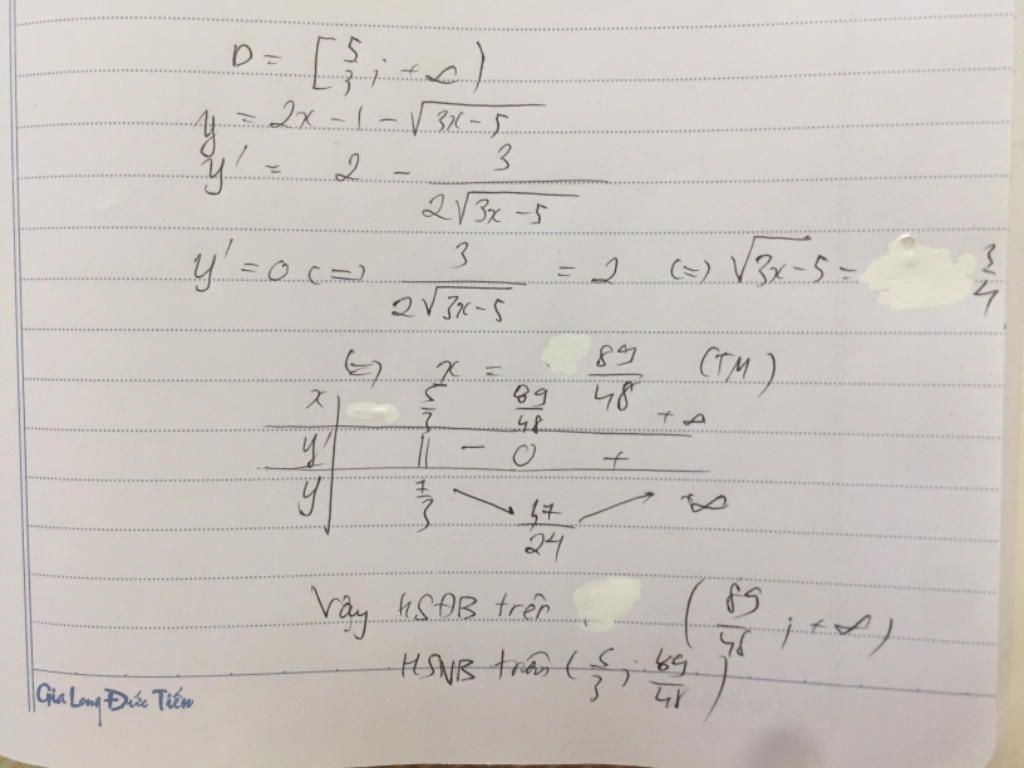 D = [5/3; +∞)
y = 2x - 1 - √(3x-5)
y' = 2 - 3/(2√(3x-5))
y' = 0 (=) 3/(2√(3x-5)) = 2 (=) √(3x-5) = 3/4
(=) x = 89/48 (TM)
x | 5/3 89/48 +∞
y' | || - 0 +
y | 7/3 ↘ 47/24 ↗ ∞
Vậy HSĐB trên (89/48; +∞)
HSNB trên (5/3; 89/48)
Gia Long Đức Tiến